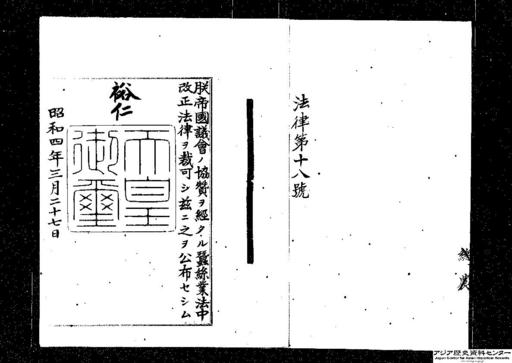 法律第十八號
朕帝國議會ノ協賛ヲ經タル蠶絲業法中
改正法律ヲ裁可シ茲ニ之ヲ公布セシム
裕仁
天皇
御璽
昭和四年三月二十七日
アジア歴史資料センター
Japan Center for Asian Historical Records